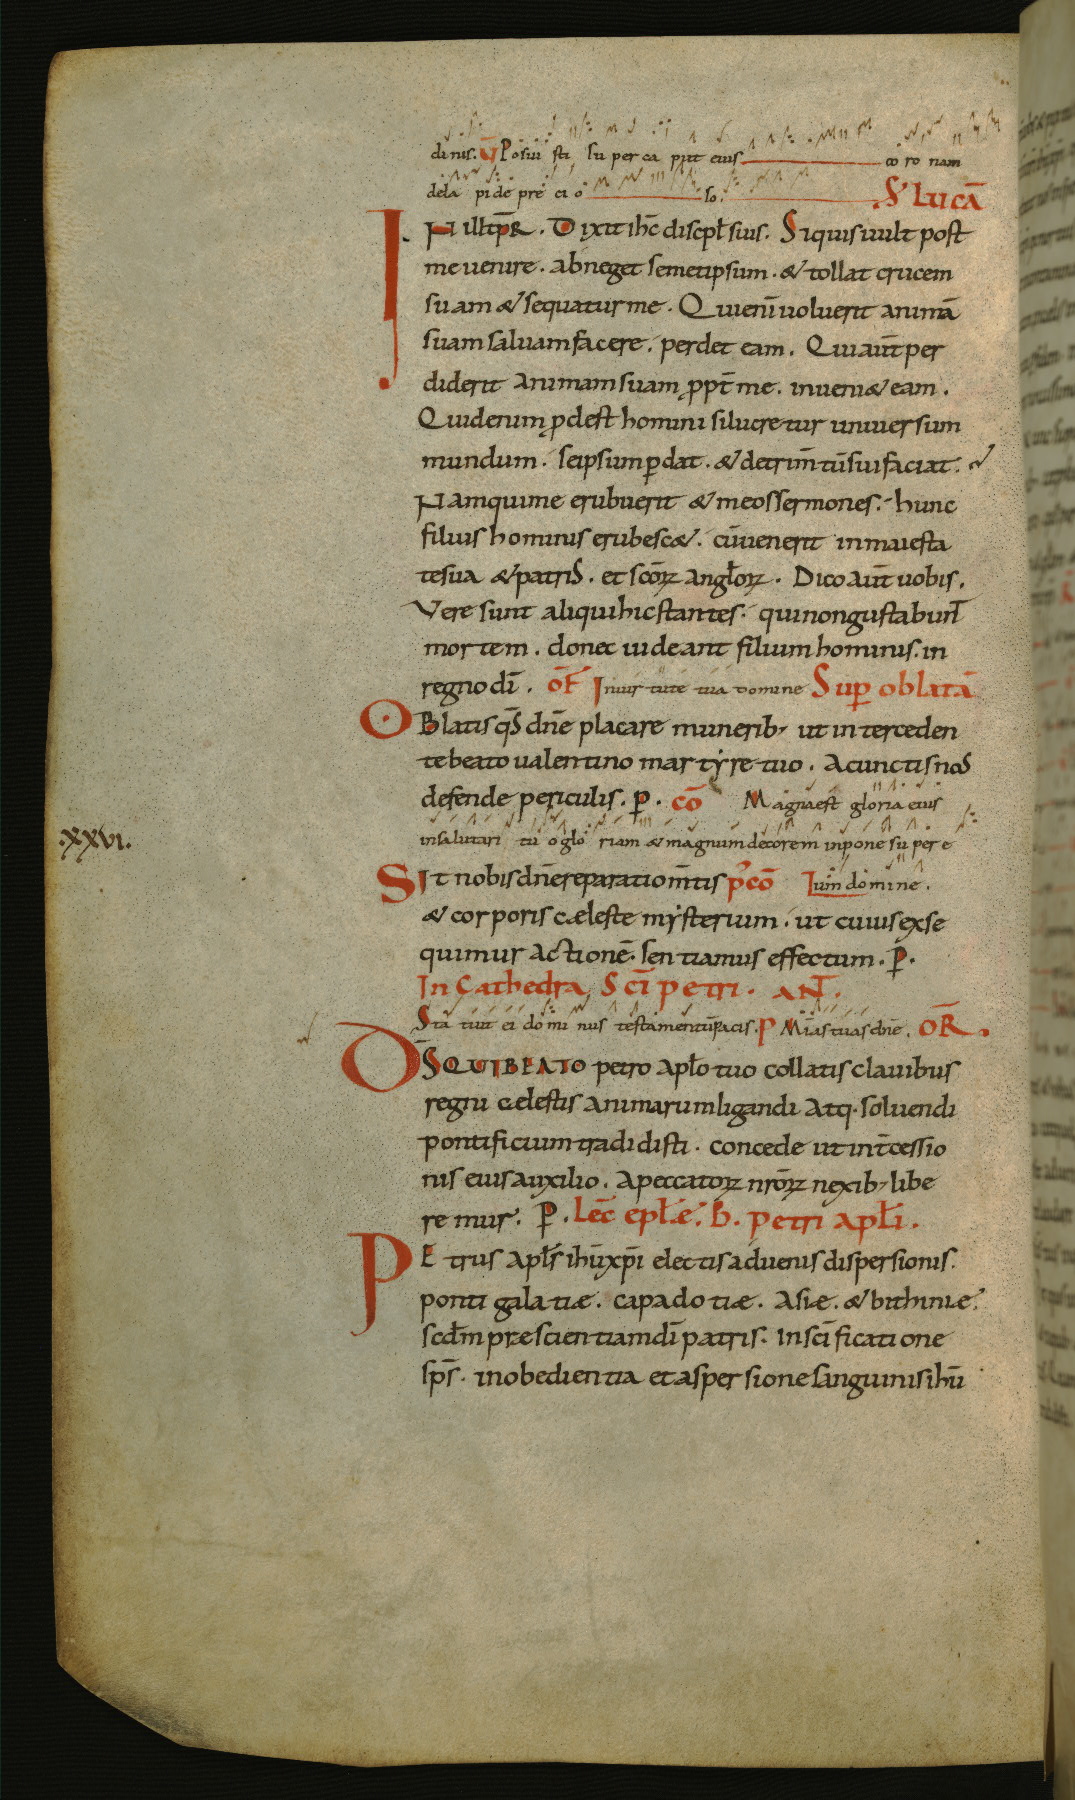 dinis. V̄ Posui sti su per ca put eius co ro nam
dela pi de pre ci o so. S' lucā
IN ill tp̄R. Dixit ihc̄ discipl̄ siuis. Siquis uult post
me uenire. abneget semetipsum. & tollat crucem
suam & sequatur me. Qui eni᷃ uoluerit animā
suam saluam facere. perdet eam. Qui aut̄ per
diderit animam suam ꝓpt̄ me. inueni& eam.
Quid enim ꝓdest homini si lucretur uniuersum
mundum. seipsum ꝑdat. & detrim̄tū sui faciat.
Nam qui me erubuerit & meos sermones. hunc
filius hominis erubesc&. cū uenerit in maiesta
te sua & patris. et sc̄oꝝ angl̄oꝝ. Dico aut̄ uobis.
Vere sunt aliqui hic stantes. qui non gustabunt̄
mortem. donec uideant filium hominis. in
regno dī. OF̄ In uir tute tua domine Suꝑ oblatā
OBlatis qs̄ dn̄e placare munerib; ut interceden
te beato ualentino martyre tuo. A cunctis nos
defende periculis. P̱. CŌ Magna est gloria eius
in salutari tu o glo riam & magnum decorem inpone su per e
.XXVI.
SIt nobis dn̄e reparatio m̄tis p'cō ium domine.
& corporis cæleste mysterium. ut cuius exse
quimur actionē. sentiamus effectum. P̱.
In Cathedra Sc̄i petri. AN̄.
Sta tuit ei do mi nus testamentū pacis. P Mīas tuas dn̄e. OR̄.
DS QUI BEATO petro apl̄o tuo collatis clauibus
regni cælestis animarum ligandi atq. soluendi
pontificium tradidisti. concede ut int̄cessio
nis eius auxilio. a peccatoꝝ nr̄oꝝ nexib; libe
remur. P̱. Lec̄ epl̄æ. B. Petri apl̄i.
PEtrus apl̄s ihū xp̄i electis aduenis dispersionis.
ponti galatiæ. capadotiæ. Asiæ. & bithiniæ.
scd̄m præscientiam dī patris. In sc̄ificatione
sp̄s. in obedientia et aspersione sanguinis ihū